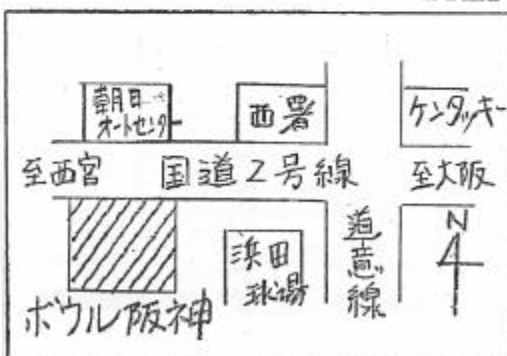 朝日
オートセンター
西署
ケンタッキー
至西宮
国道2号線
至大阪
浜田
球場
道意線
N
ボウル阪神